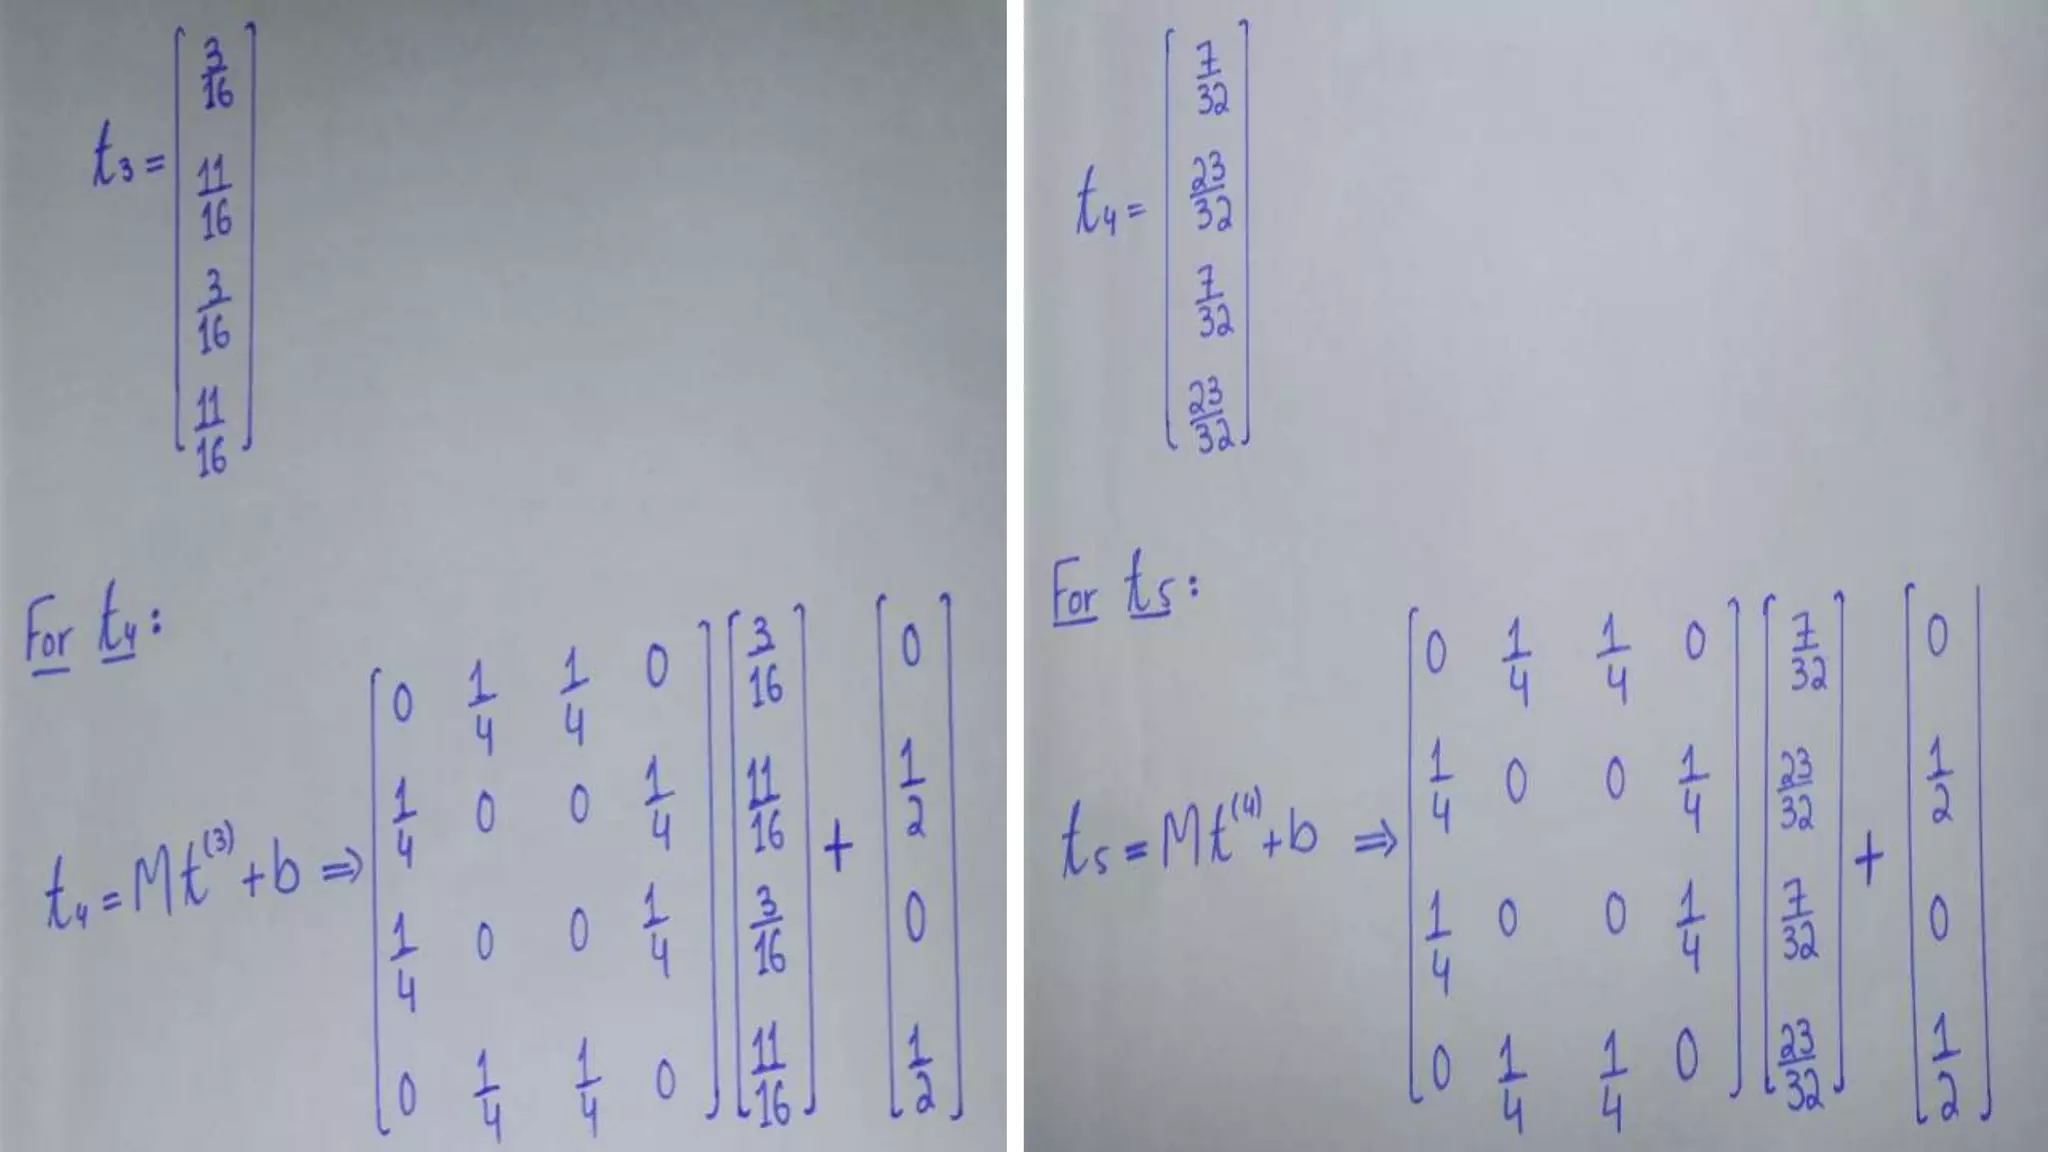 t₃ = [3/16 11/16 3/16 11/16]
For t₄:
t₄ = Mt⁽³⁾ + b ⇒ [0 1/4 1/4 0; 1/4 0 0 1/4; 1/4 0 0 1/4; 0 1/4 1/4 0] [3/16 11/16 3/16 11/16] + [0 1/2 0 1/2]
t₄ = [7/32 23/32 7/32 23/32]
For t₅:
t₅ = Mt⁽⁴⁾ + b ⇒ [0 1/4 1/4 0; 1/4 0 0 1/4; 1/4 0 0 1/4; 0 1/4 1/4 0] [7/32 23/32 7/32 23/32] + [0 1/2 0 1/2]